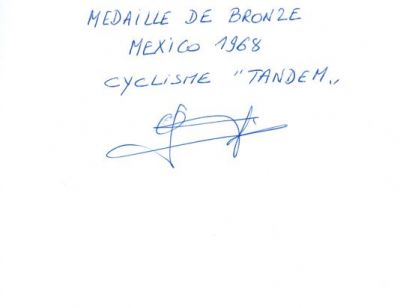 MEDAILLE DE BRONZE
MEXICO 1968
CYCLISME "TANDEM"